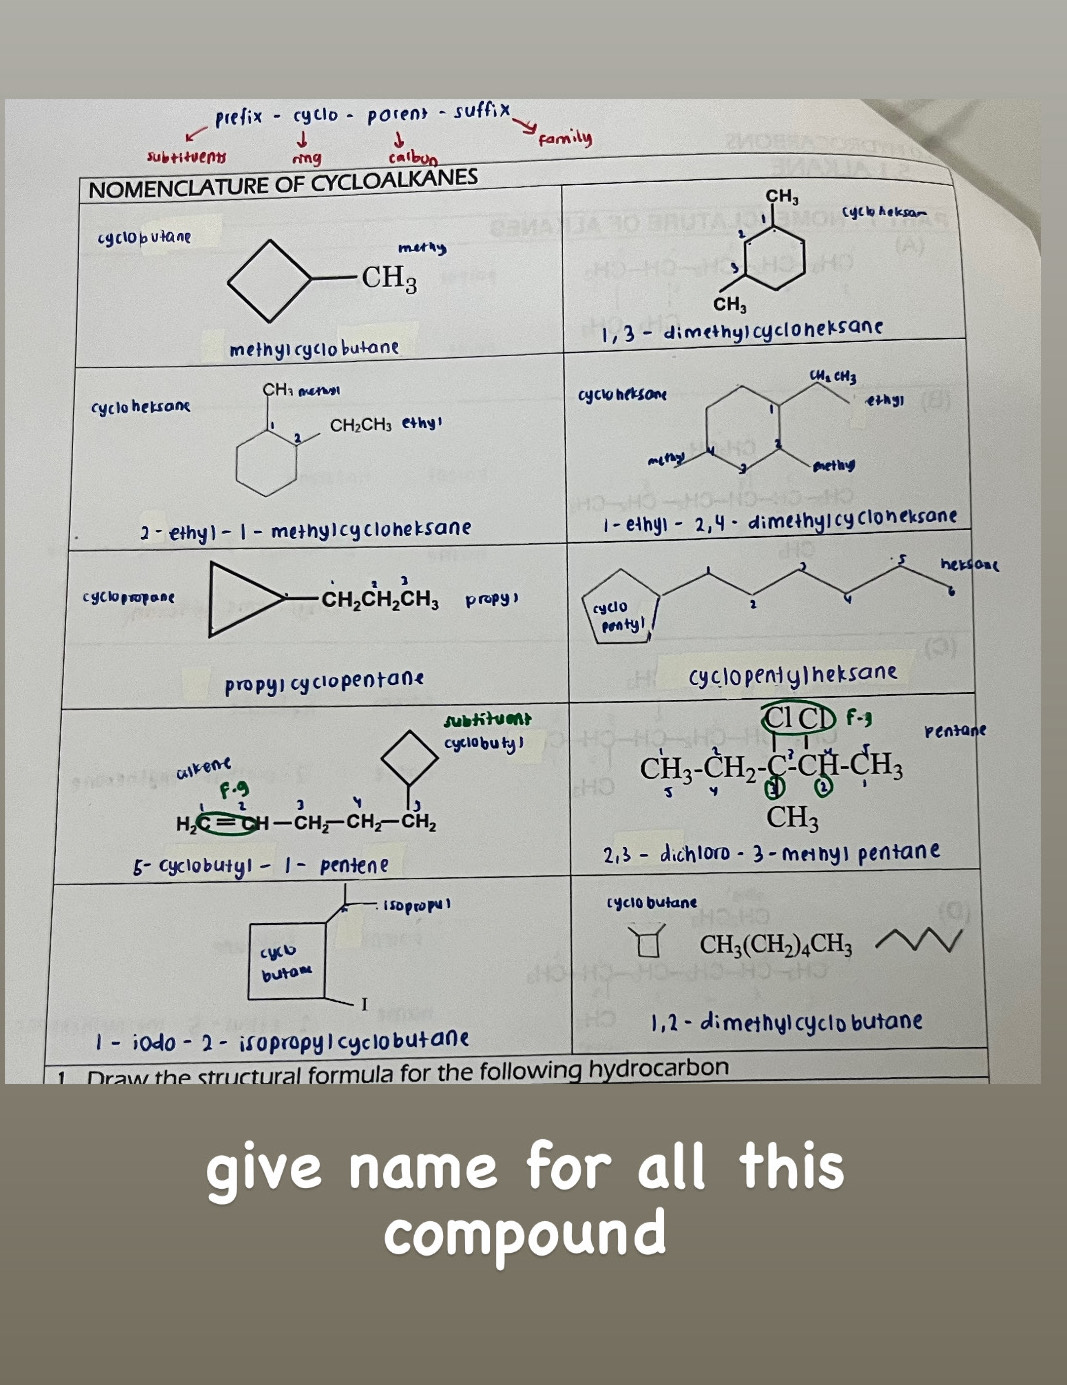 prefix - cyclo - parent - suffix
substituents
ring
carbon
family
NOMENCLATURE OF CYCLOALKANES
cyclobutane
methy
CH3
methylcyclobutane
CH3
1
2
3
cycloheksan
CH3
1,3 - dimethylcycloheksane
cycloheksane
CH3 methyl
1
2
CH2CH3 ethyl
2 - ethyl - 1 - methylcycloheksane
cycloheksane
CH2 CH3
ethyl
1
2
3
4
methyl
methyl
1 - ethyl - 2,4 - dimethylcycloheksane
cyclopropane
1 2 3
CH2CH2CH3 propyl
propylcyclopentane
cyclo
pentyl
1
2
3
4
5
6
heksane
cyclopentylheksane
substituent
cyclobutyl
alkene
F.g
1 2 3 4 5
H2C=CH-CH2-CH2-CH2
5- cyclobutyl - 1 - pentene
Cl Cl F-g
pentane
1 2 3 4 5
CH3-CH2-C-CH-CH3
5 4 3 2 1
CH3
2,3 - dichloro - 3 - methyl pentane
isopropyl
cyclo
butane
I
1 - iodo - 2 - isopropylcyclobutane
cyclobutane
CH3(CH2)4CH3
1,2 - dimethylcyclobutane
1. Draw the structural formula for the following hydrocarbon
give name for all this
compound